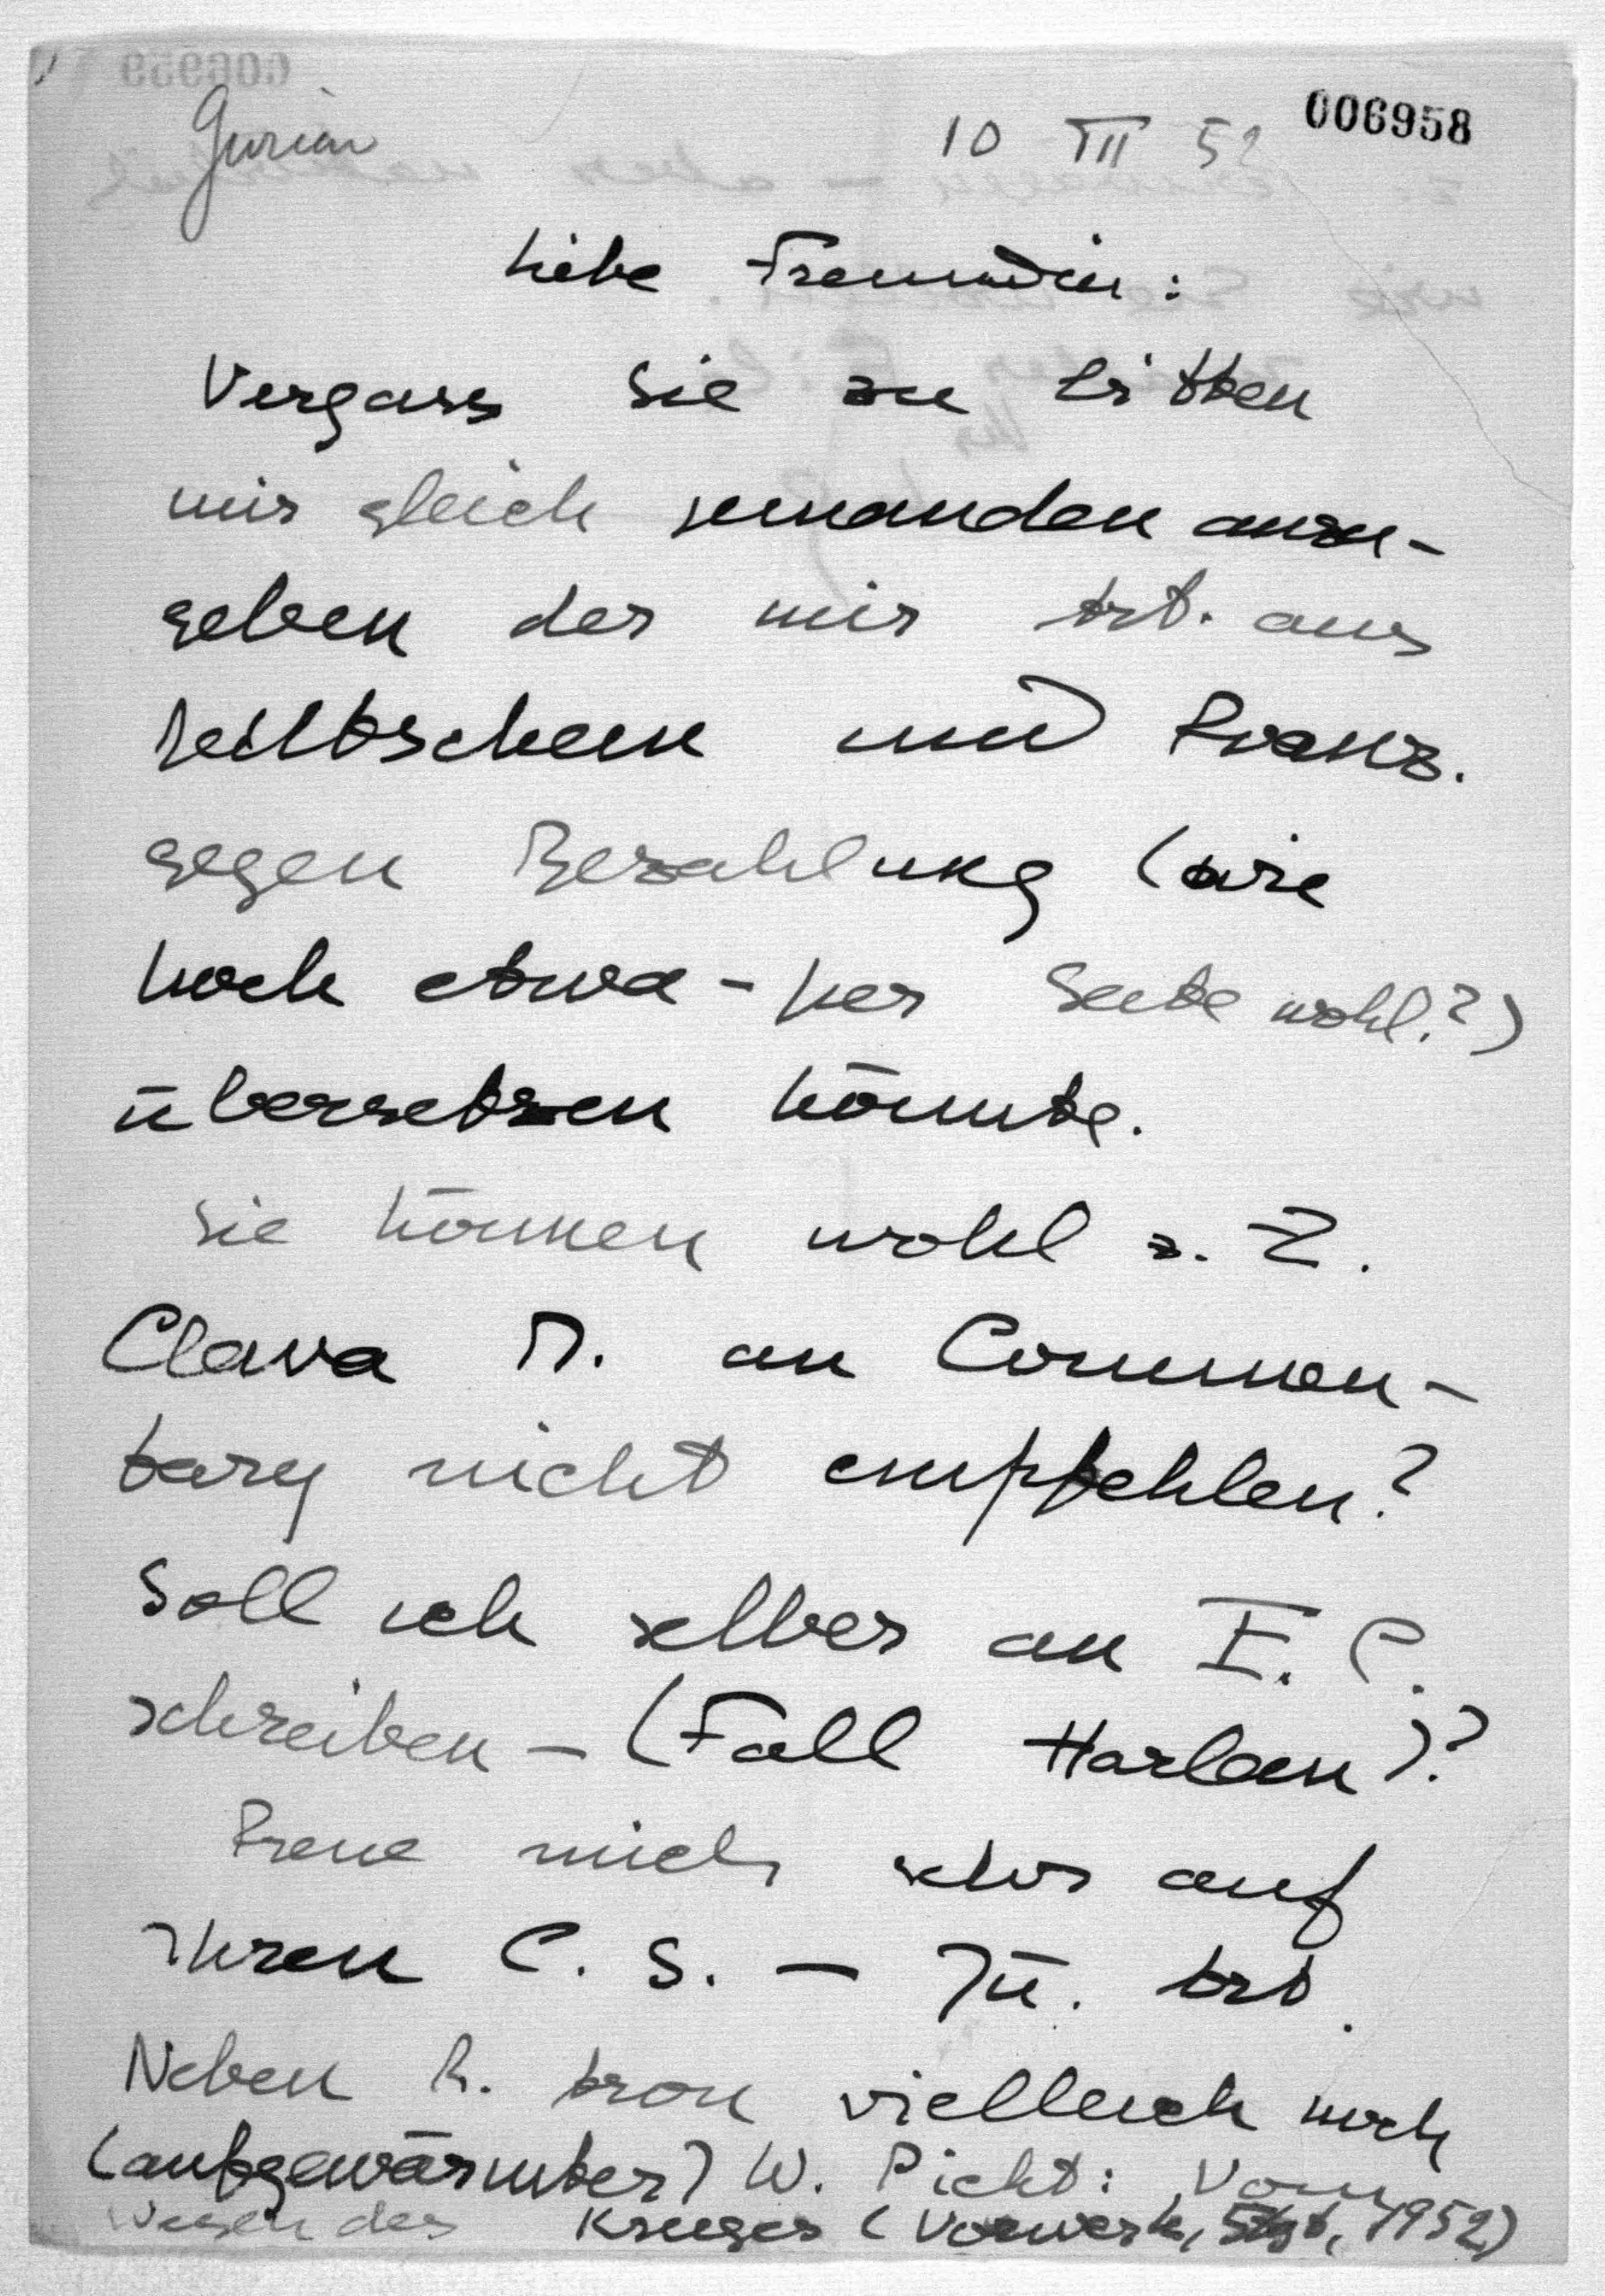 006958
Gurian
10 XII 52
Liebe Freundin:
Vergass Sie zu bitten
mir gleich jemanden anzu-
geben der mir Art. aus
Deutschem und Franz.
gegen Bezahlung (wie
hoch etwa - per Seite wohl?)
übersetzen könnte.
Sie können wohl z. Z.
Clara M. an Commen-
tary nicht empfehlen?
Soll ich selber an E. C.
schreiben – (Fall Harlan)?
Freue mich sehr auf
Ihren C. S. –
Neben R. Aron vielleich noch
(aufgewärmter) W. Picht: Vom
Wesen des Krieges (Vorwerk, Stgt, 1952)